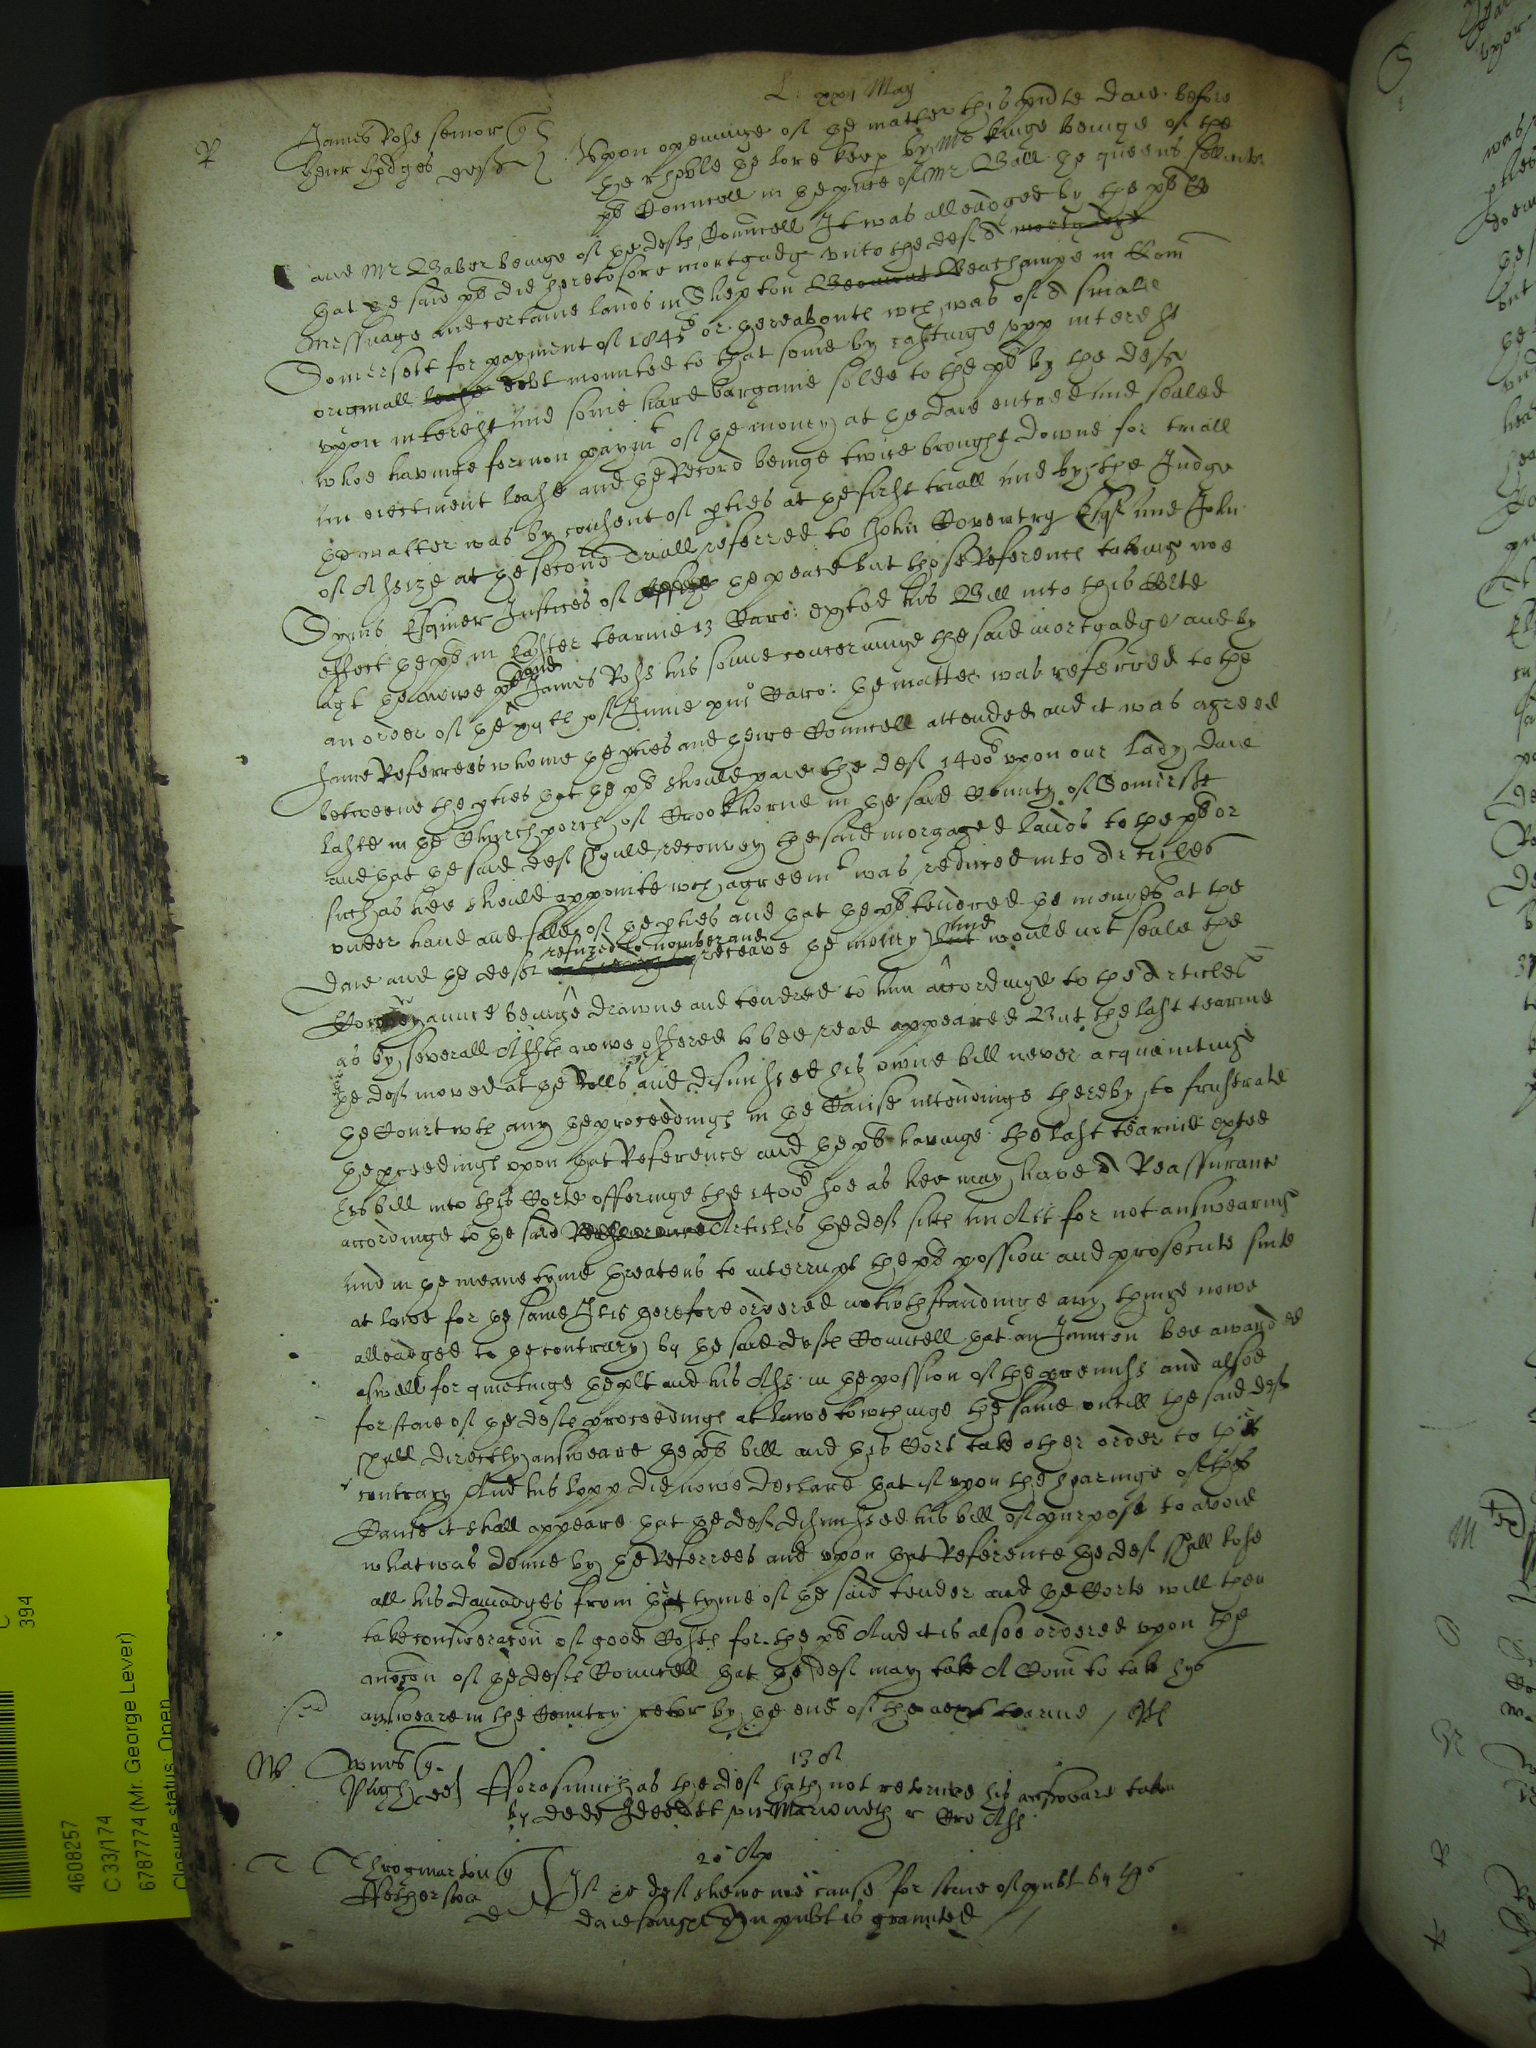 L: xxj May
R James Rose senior q
Henr Hodges deft
Upon openinge of the matter this pnte daie before
the right hoble the lord keep by Mr Kinge beinge of the
pts Councell in the pnce of Mr Wall the queens sollicitor
and Mr Baber beinge of the defts Councell It was alleadged by the pts Co
that the said pt did heretofore mortgadg unto the deft a
messuage and certaine lands in Shepton Beachampe in Com
Somersett for payment of 1845li or thereabouts wch was of a smale
originall debt mounted to that some by castinge upp interest
upon interest and some hard bargaine solde to the pt by the deft
whoe havinge for non paymt of the money at the daie entred and sealed
an eiectment lease and the Record beinge twice brought downe for triall
the matter was by consent of pties at the first triall and by the Judge
of Assize at the second triall referred to John Coventry Esqr and John
Symes Esquier Justices of the peace but those References takeing noe
effect the pt in Easter tearme 13 Caro: exhted his Bill into this Corte
agt the nowe pt and James Rose his sonne concerninge the said mortgadge and by
an order of the of June Caro: the matter was referred to the
same Referrees whome the pties and theire Councell attended and it was agreed
betweene the pties that the pt should paie the deft 1400li upon our Lady daie
laste in the Church porch of Crookhorne in the said County of Somersett
and that the said deft should reconvey the said morgaged lands to the pt or
such as hee should appointe wch agreemt was reduced into Articles
under hand and seale of the pties and that the pt tendred the moneyes at the
daie and the deft refuzed to number and receave the money and would not seale the
Conveyance beinge drawne and tendred to him accordinge to the Articles
as by severall Affts nowe offered to bee read appeared But the last tearme
the deft moved at the Rolls and dismissed his owne bill never acquaintinge
the Court wth any the proceedings in the Cause intendinge thereby to frustrate
the pceedings upon that Reference and the pt havinge the last tearme exhted
his bill into this Corte offeringe the 1400li soe as hee may have a Reassurance
accordinge to the said Articles the deft sitts in Att for not answearing
and in the meane tyme threatens to interrupt the pts possion and prosecute suite
at lawe for the same It is therefore ordered notwithstandinge any thinge nowe
alleadged to the contrary by the said defts Councell that an Iniuncon bee awarded
aswell for quietinge the plt and his Ass: in the possion of the premiss and alsoe
for staie of the defts proceedings at lawe towchinge the same untill the said deft
shall directly answeare the pts bill and this Cort take other order to the
contrary And his Lopp did nowe declare that if upon the hearinge of this
Cause it shall appeare that the deft dismissed his bill of purpose to avoid
what was donne by the Referrees and upon that Reference the deft shall lose
all his damadges from that tyme of the said tender and the Corte will then
take consideracon of good Costs for the pt And it is alsoe ordered upon the
mocon of the defts Councell that the deft may take A Com to take his
answeare in the Country retor by the end of the next tearme /
W q
Pugh deft
13 Ap
Forasmuch as the deft hath not retorned his answeare taken
by ded
T Throgmarton q
Fetherston
d
20 Ap
If the deft shewe noe cause for staie of publ by this
daie publ is graunted //
C
394
4608257
C 33/174
6787774 (Mr. George Lever)
Closure status: Open